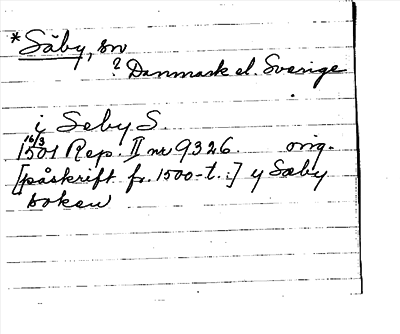 *Säby, sn
? Danmark el. Sverige
i Seby S.
16/3
1501 Rep. II nr 9326. orig.
[påskrift fr. 1500-t.:] y Sæby
boken